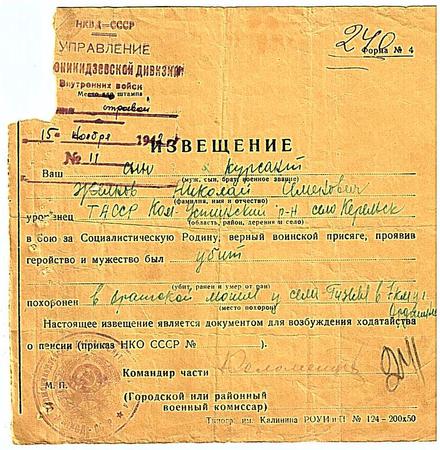 НКВД—СССР
УПРАВЛЕНИЕ
ОНИКИДЗЕВСКОЙ ДИВИЗИИ
Внутренних войск
Место для штампа
строевой
240
Форма № 4
15 ноября 1942
№ 11
ИЗВЕЩЕНИЕ
Ваш сын курсант
(муж, сын, брат, военное звание)
Николай Семенович
(фамилия, имя и отчество)
уроженец ТАССР Кам-Устинский р-н село
(область, район, деревня и село)
в бою за Социалистическую Родину, верный воинской присяге, проявив
геройство и мужество был убит
(убит, ранен и умер от ран)
похоронен в братской могиле у села Гизель в
(место похорон)
Настоящее извещение является документом для возбуждения ходатайства
о пенсии (приказ НКО СССР №
).
Командир части
М. П.
(Городской или районный
военный комиссар)
Типогр. им. Калинина РОУИ и П № 124 – 200х50